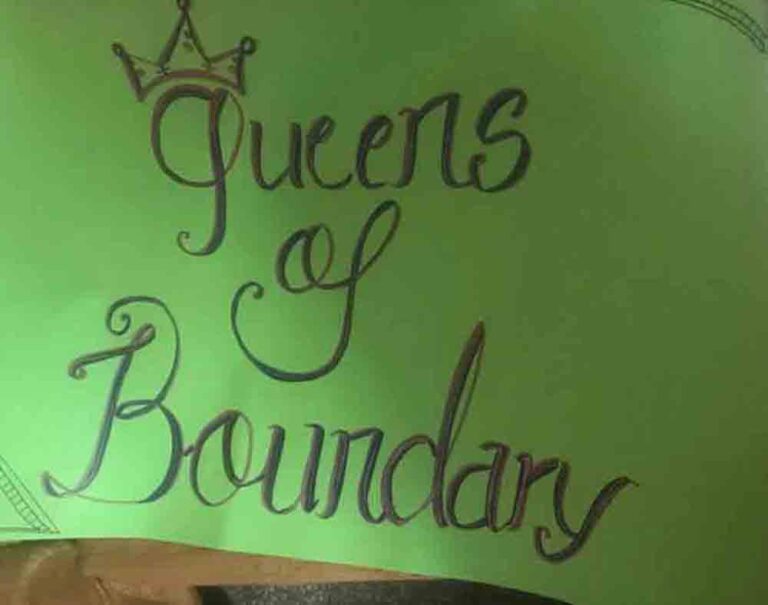 Queens
of
Boundary